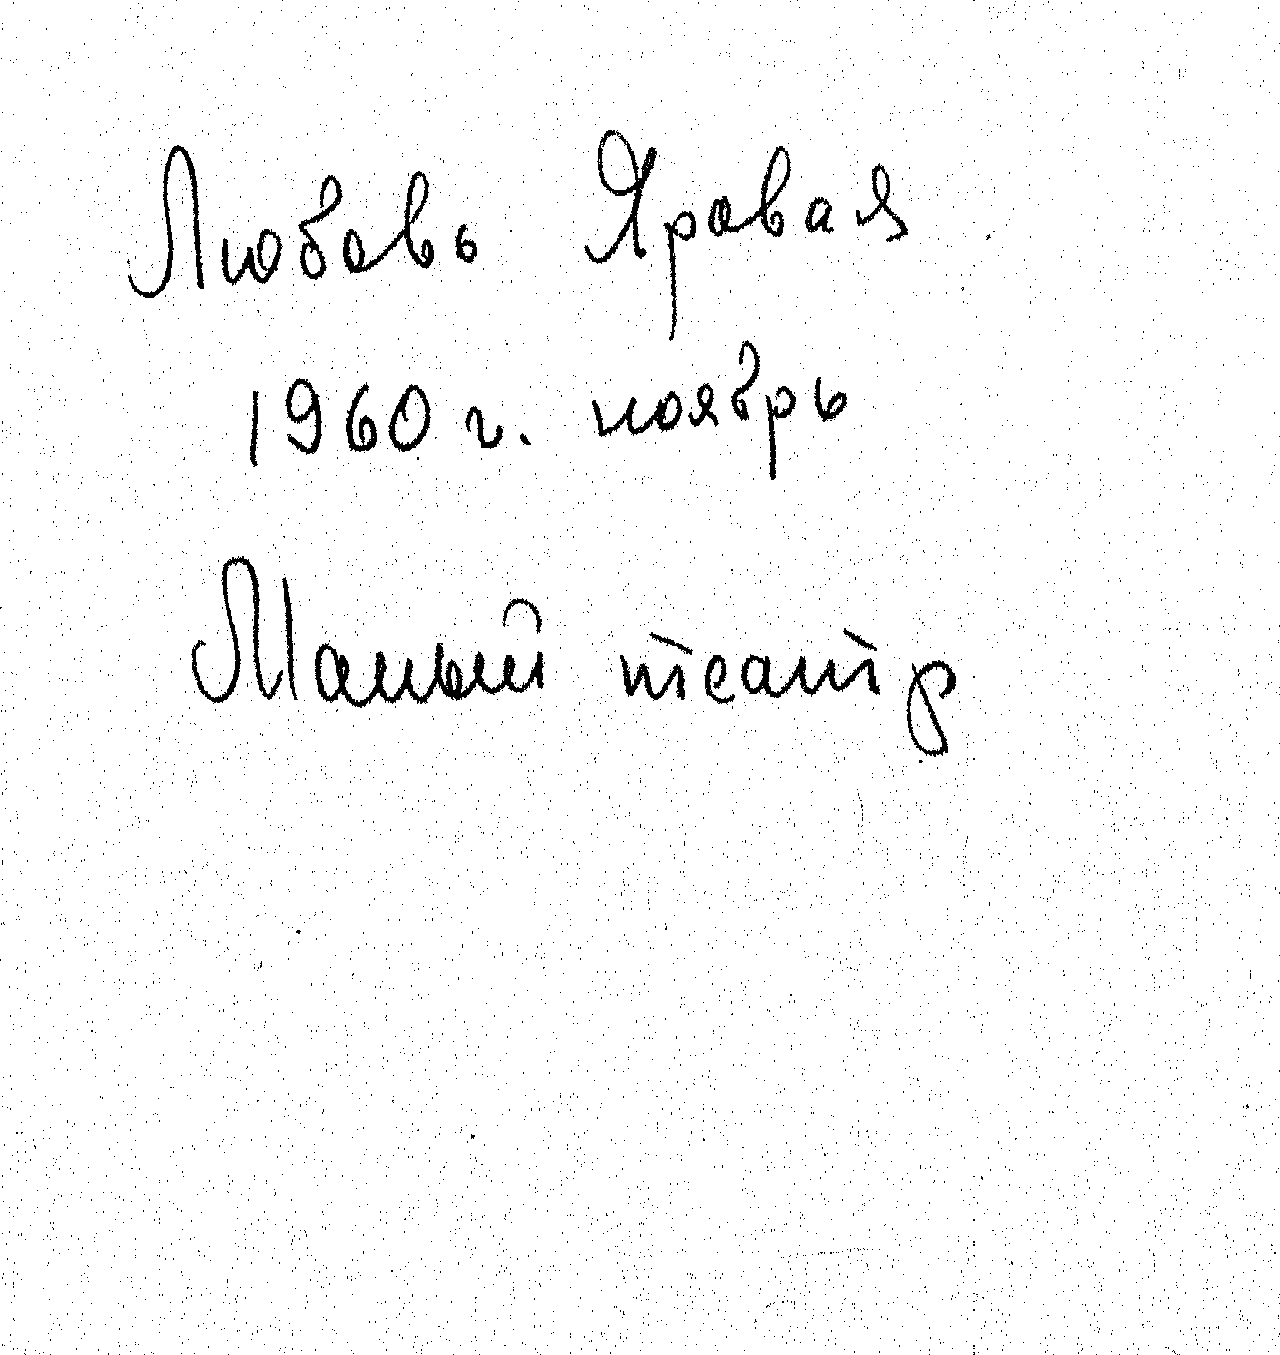 Любовь Яровая
1960 г. ноябрь
Малый театр